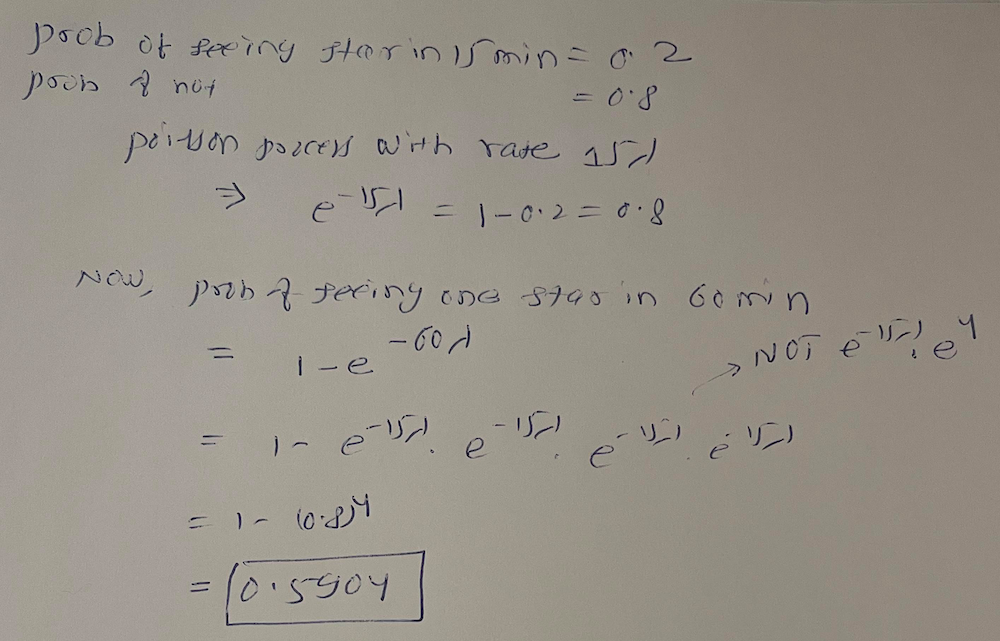 prob of seeing star in 15 min = 0.2
prob of not = 0.8
poisson process with rate 15λ
⇒ e^-15λ = 1-0.2 = 0.8
NOW, prob of seeing one star in 60 min
= 1-e^-60λ
→ NOT e^-15λ. e^4
= 1- e^-15λ. e^-15λ. e^-15λ. e^-15λ
= 1- (0.8)^4
= 0.5904